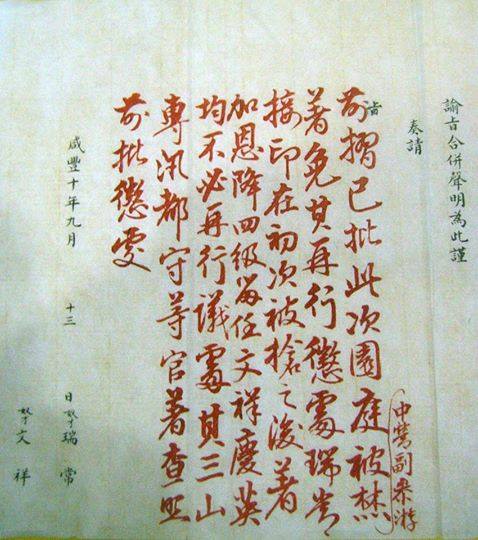 諭旨合併聲明為此謹
奏請
旨
中營副參游
前摺已批此次園庭被焚
著免其再行懲處瑞常
接印在初次被搶之後著
加恩降四級留任文祥慶英
均不必再行議處其三山
專汛都守等官著查照
前批懲處
咸豐十年九月 十三 日奴才瑞常
奴才文祥